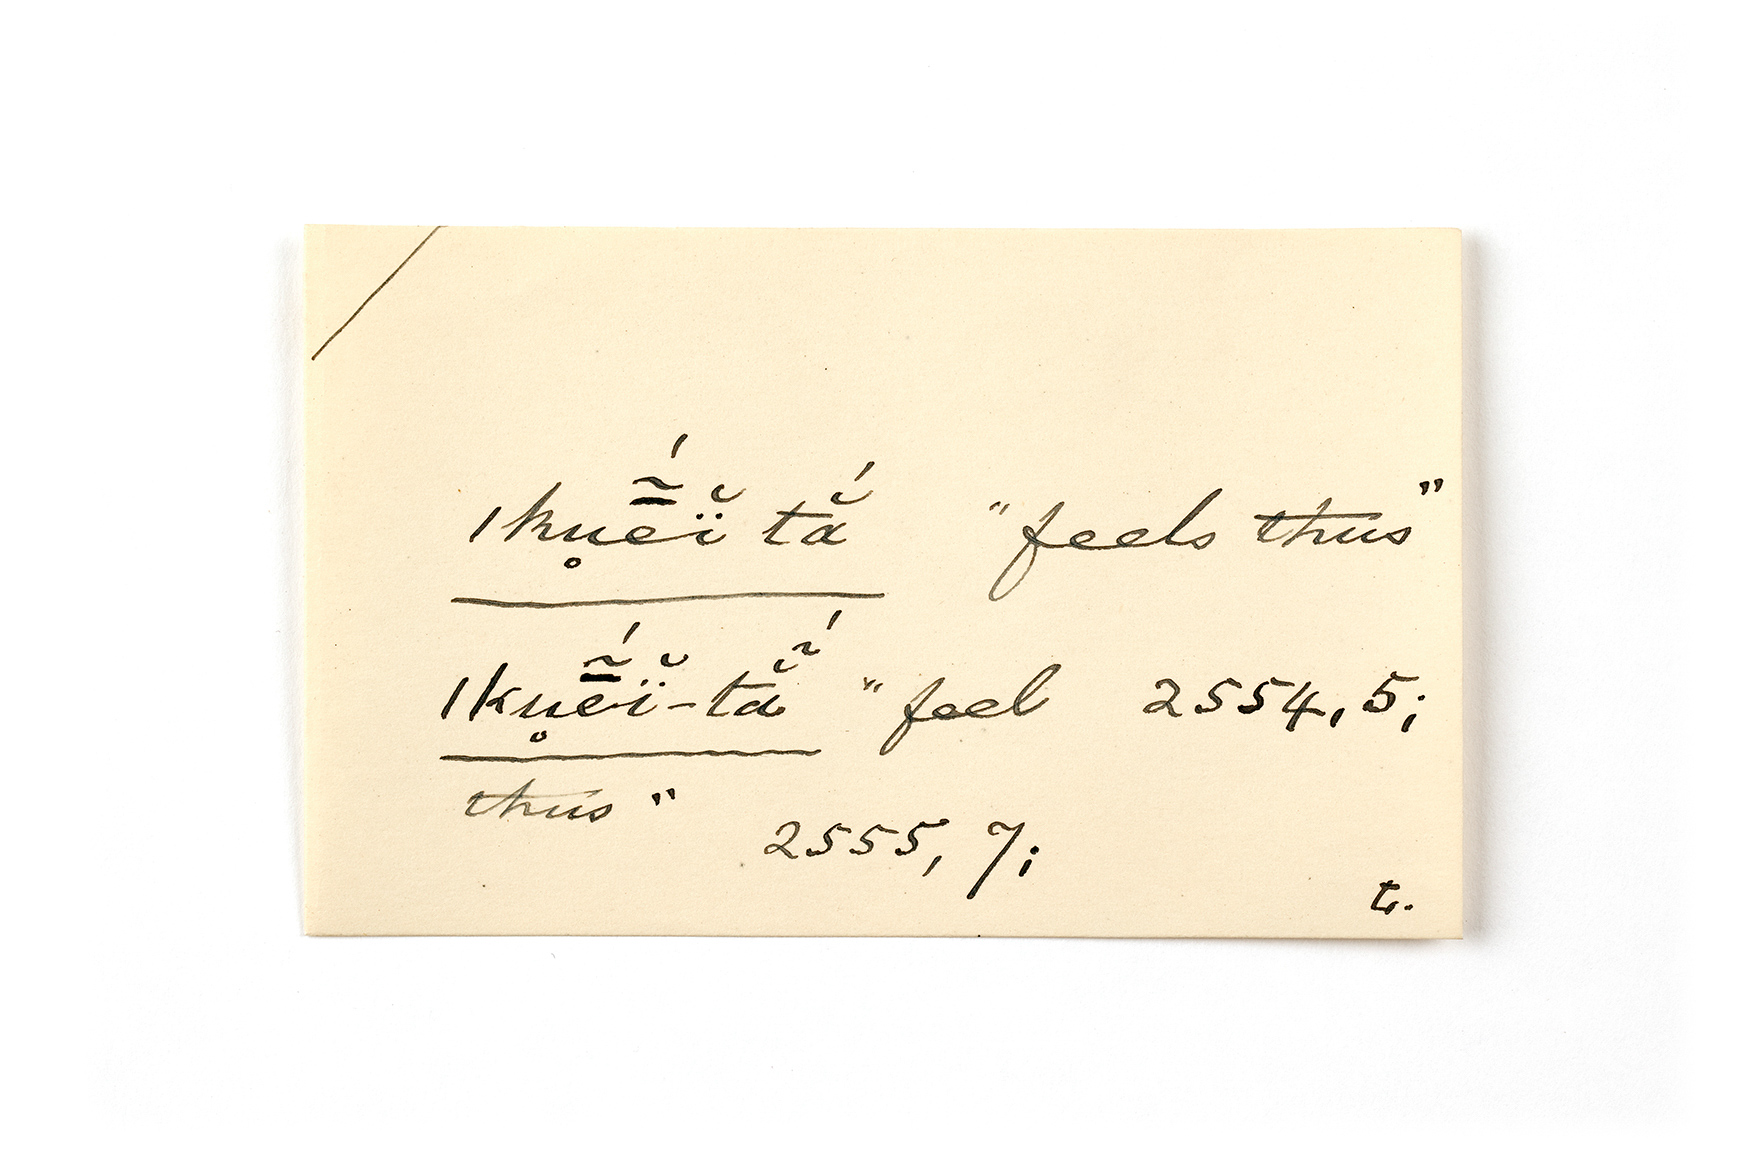 /kụē̃́ĭ tắ "feels thus"
/kụē̃́ĭ-tẵ́ "feel 2554, 5;
thus"
2555, 7;
t.